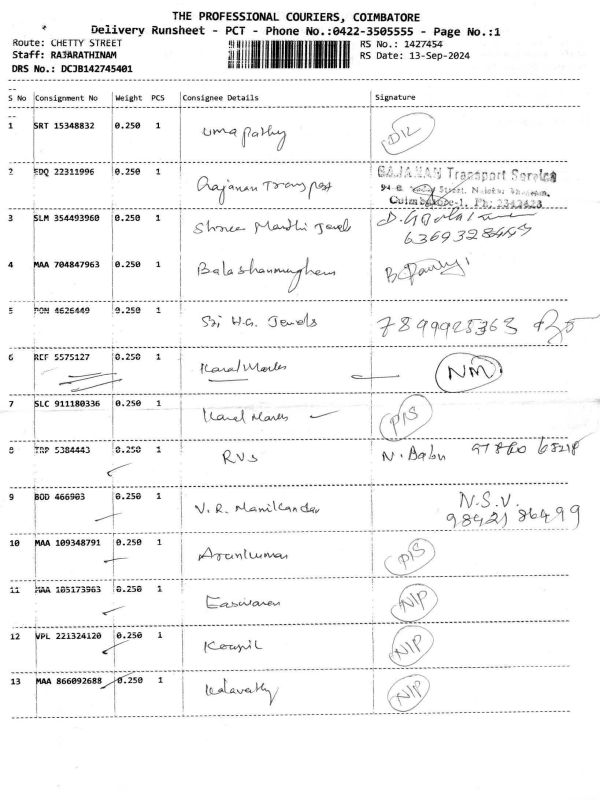 THE PROFESSIONAL COURIERS, COIMBATORE
Delivery Runsheet - PCT - Phone No.:0422-3505555 - Page No.:1
Route: CHETTY STREET RS No.: 1427454
Staff: RAJARATHINAM RS Date: 13-Sep-2024
DRS No.: DCJB142745401
S No Consignment No Weight PCS Consignee Details Signature
1 SRT 15348832 0.250 1 Uma pathy D/L
2 EDQ 22311996 0.250 1 Gajanan Transport GAJANAN Transport Service
Street,
Coimbatore-1. Ph: 2342423
3 SLM 354493960 0.250 1 Shree Jewels D.
4 MAA 704847963 0.250 1 Balashanmugham B.
5 PON 4626449 0.250 1 Sri H.G. Jewels 7899925363
6 REF 5575127 0.250 1 Kanal Marks NM
7 SLC 911180336 0.250 1 Kanal Marks P/S
8 TRP 5384443 0.250 1 RVS N. Babu
9 BOD 466903 0.250 1 V. R. Manikandan N.S.V.
98421 86499
10 MAA 109348791 0.250 1 Arunkumar P/S
11 MAA 105173963 0.250 1 Easwaran N/P
12 VPL 221324120 0.250 1 N/P
13 MAA 866092688 0.250 1 Kalavathy N/P